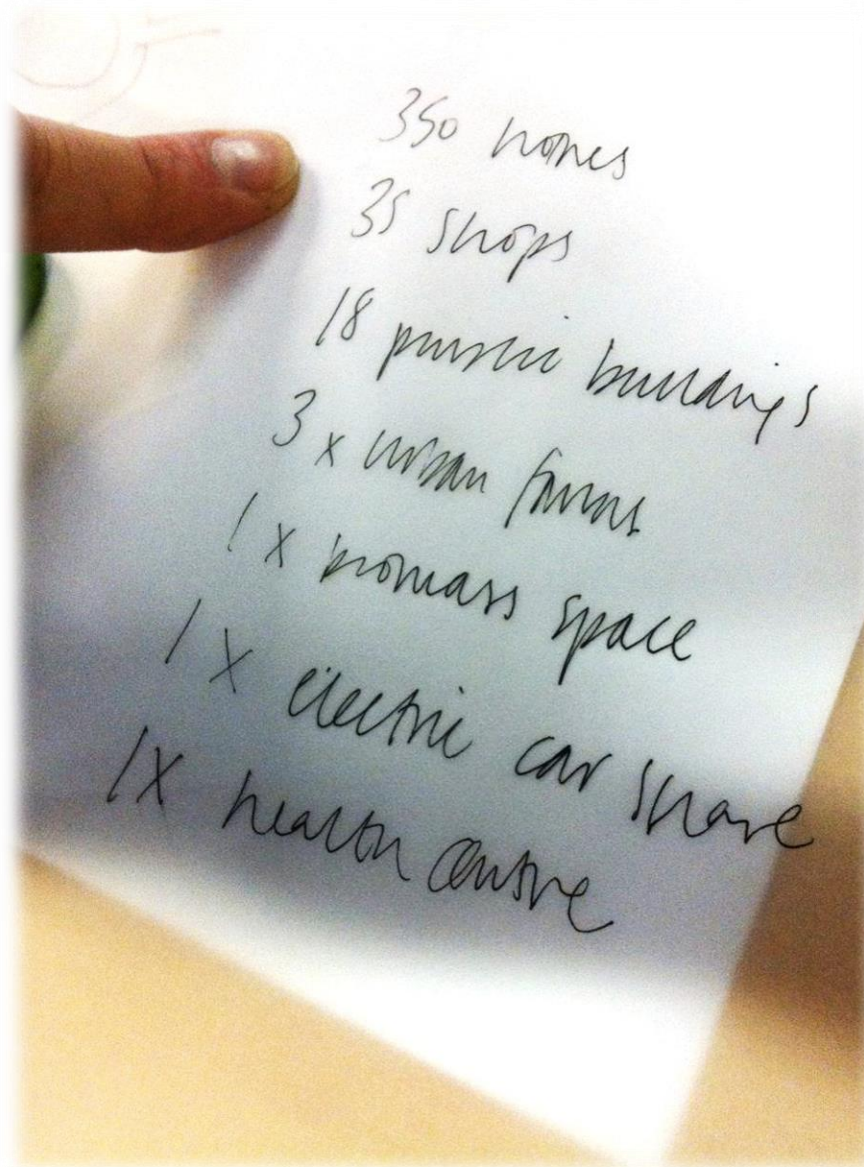 350 homes
35 shops
18 public buildings
3 x urban farms
1 x biomass space
1 x electric car share
1 x health centre